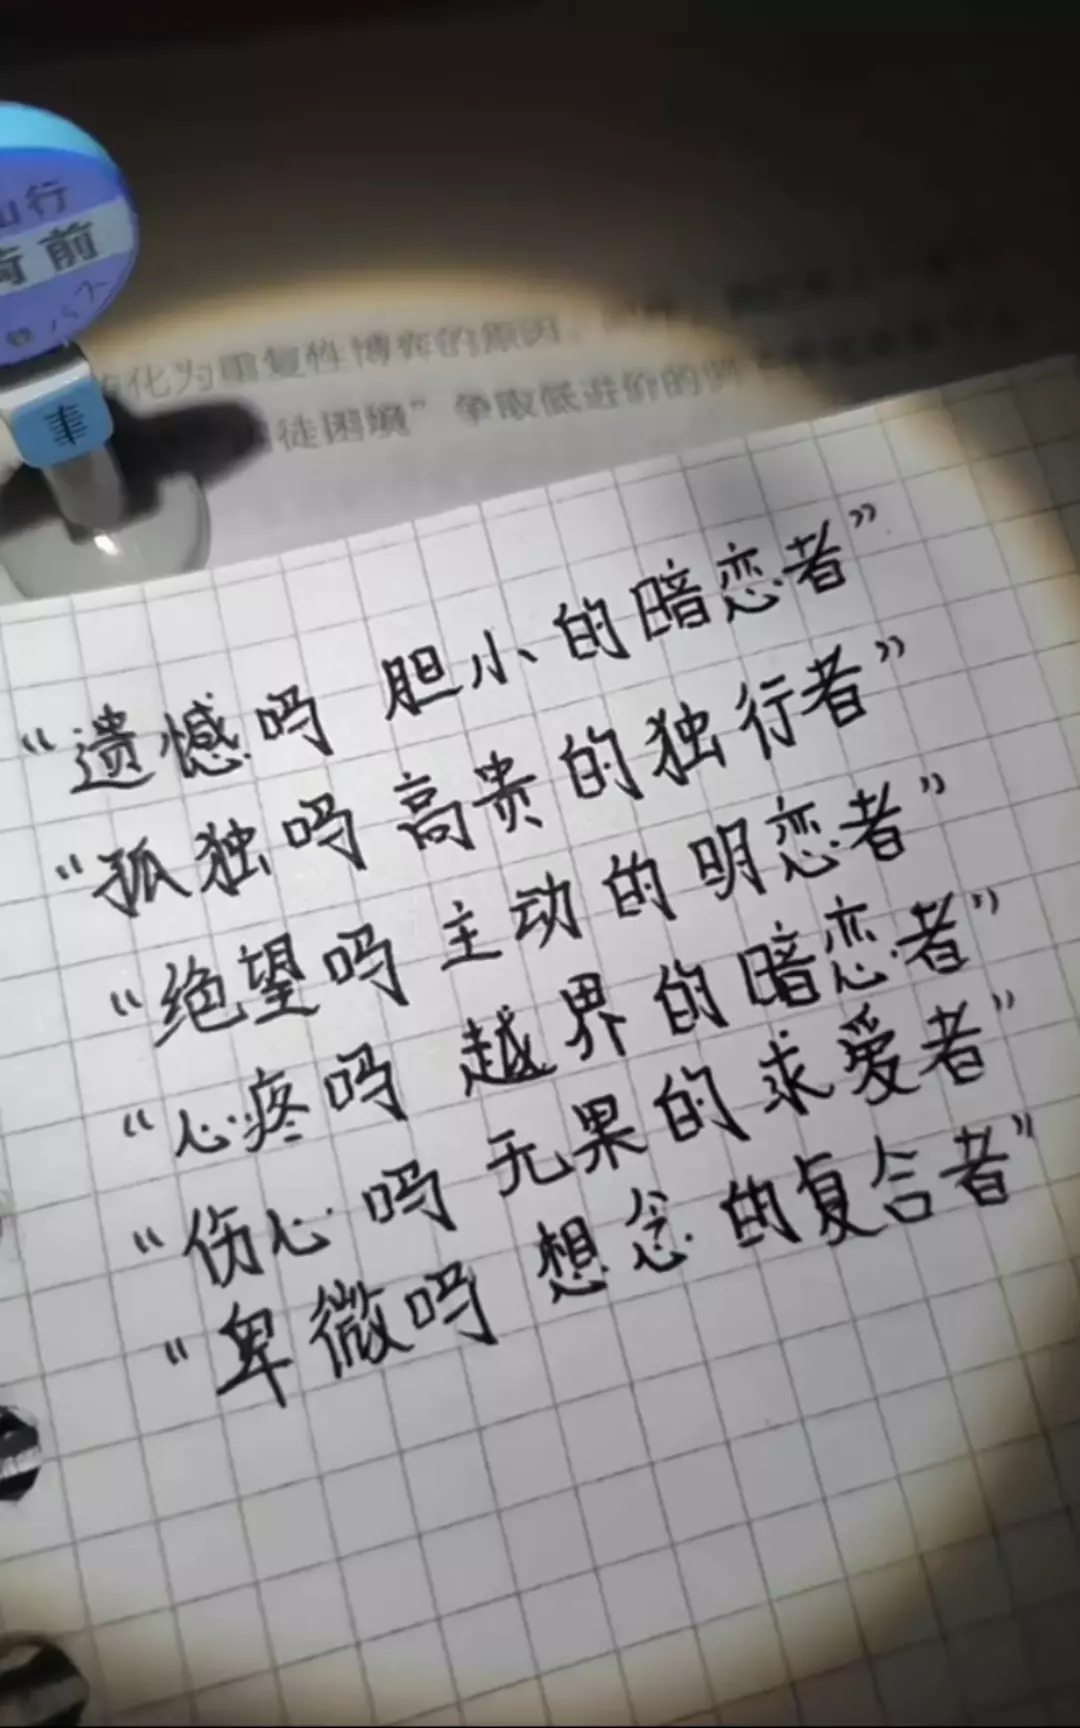 山行
前
事
化为重复性博弈的原因
徒困境”争取低进价的
“遗憾吗 胆小的暗恋者”
“孤独吗 高贵的独行者”
“绝望吗 主动的明恋者”
“心疼吗 越界的暗恋者”
“伤心吗 无果的求爱者”
“卑微吗 想念的复合者”